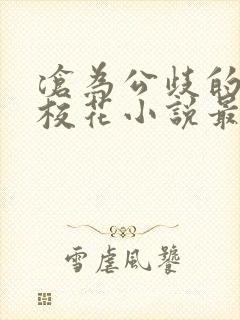 淪為公歧的
校花小說最
雪虐風饕